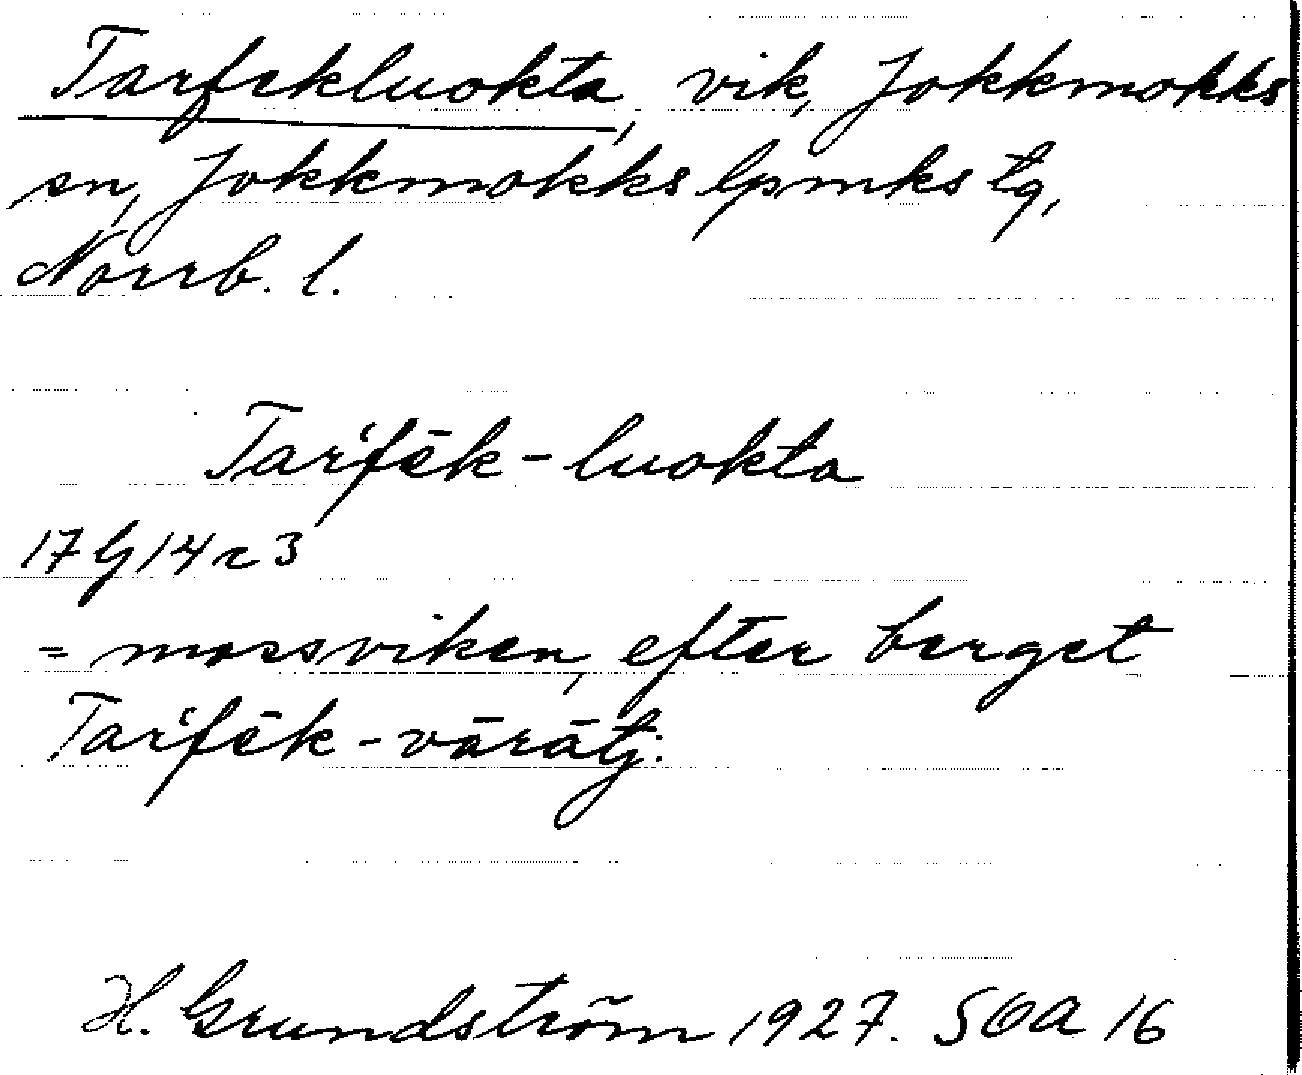 Tarfekluokta, vik, Jokkmokks
sn, Jokkmokks lpmks tg,
Norrb. l.
Tarʻfēk-luokta
17G14r3
= mossviken, efter berget
Tarʻfēk-vārātj.
H. Grundström 1927. SOA 16